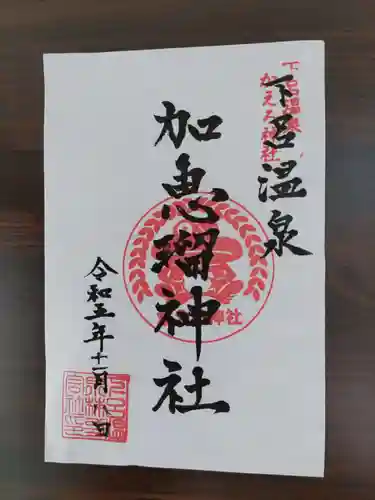 下呂温泉
下呂温泉
かえる神社
加恵瑠神社
令和五年十一月八日
神社